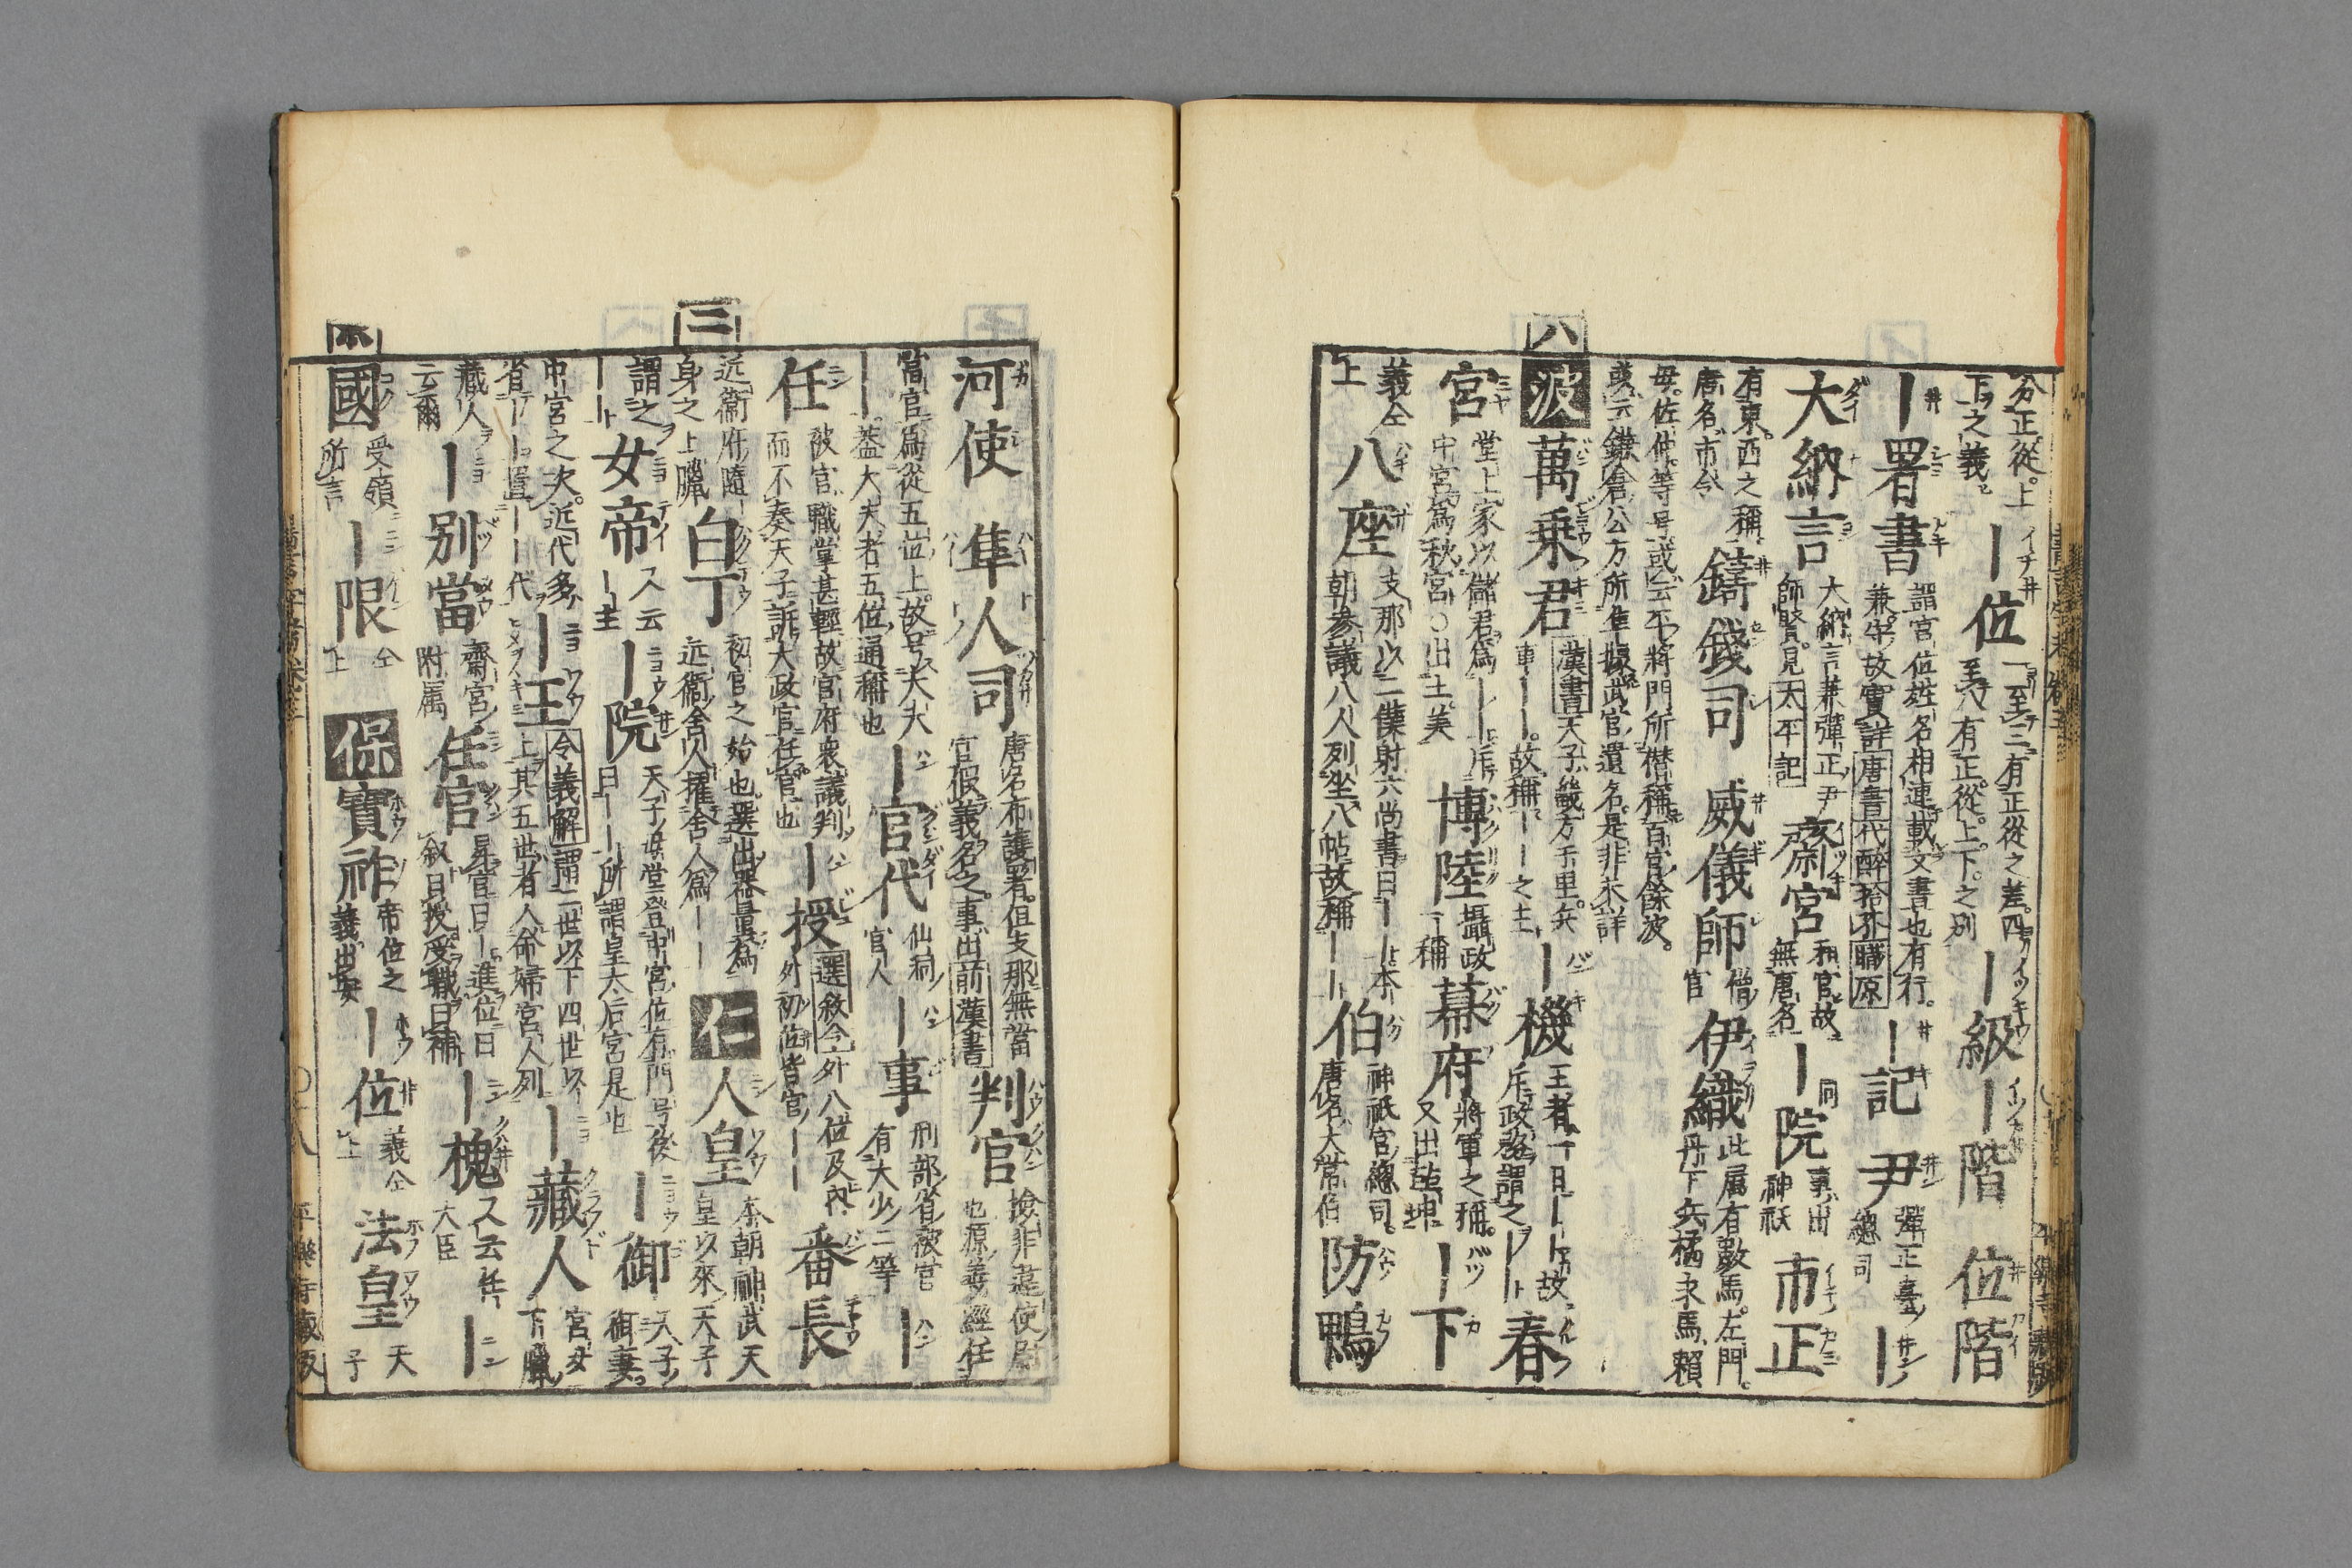 分正從上
下之義
｜位
一至三有正從之差四
至八有正從上下之別
｜級
｜階
位階
｜署書
謂官位姓名相連載文書也有行
兼守故實詳唐書代醉拾芥職原
｜記
尹
彈正臺
總司
｜
大納言
大納言兼彈正尹
師賢見太平記
齋宮
和官故
無唐名
｜院
事出
神祇
市正
有東西之稱
唐名市令
鑄錢司
威儀師
僧
官
伊織
此屬有數馬左門
丹下兵橘求馬賴
母佐仲等号或云平將門所僭稱百官餘波
或云鎌倉公方所準據武官遺名是非未詳
八
波
萬乗君
漢書天子畿方千里兵
車｜｜故稱｜｜之主
｜機
王者一日｜｜故
斥政務謂之｜
春
宮
堂上家以儲君爲｜｜斥
中宮爲秋宮○出土美
博陸
攝政
｜稱
幕府
將軍之稱
又出乾坤
｜下
義仝
上
八座
支那以二僕射六尚書曰｜｜本
朝參議八人列坐八帖故稱｜｜
伯
神祇官總司
唐名大常伯
防鴨
河使
隼人司
唐名布護署但支那無當
官假義名之事出前漢書
判官
撿非違使尉
也源義經任
當官爲從五位上故号大夫
｜蓋大夫者五位通稱也
｜官代
仙洞
官人
｜事
刑部省被官
有大少二等
｜
任
被官職掌甚輕故官府衆議判
而不奏天子訴大政官任官也
｜授
選敘令外八位及內
外初位皆官｜｜
番長
近衞府隨
身之上﨟
白丁
初官之始也選出器量爲
近衞舍人擢舍人爲｜｜
三
仁
人皇
本朝神武天
皇以來天子
謂之
｜｜
女帝
又云
｜主
｜院
天子母堂登中宮位有門号後
曰｜｜所謂皇太后宮是也
｜御
天子
御妻
中宮之次近代多
省｜｜置｜｜代
｜王
令義解謂二世以下四世以
上其五世者入命婦宮人列
｜藏人
宮女
下﨟
藏人
云爾
｜別當
齋宮
附属
任官
昇官曰｜進位曰
敘曰授受職曰補
｜槐
又云任
大臣
｜
木
國
受領
所言
｜限
仝
上
保
寶祚
帝位之
義出安
｜位
義仝
上
法皇
天
子